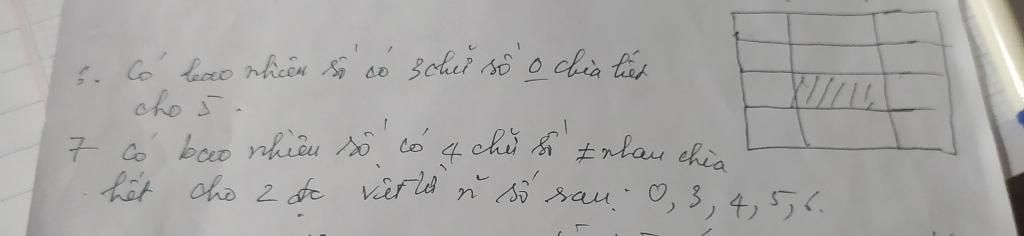 6. Có bao nhiêu số có 3 chữ số 0 chia hết
cho 5.
7 Có bao nhiêu số có 4 chữ số ≠ nhau chia
hết cho 2 đc viết từ n~ số sau: 0, 3, 4, 5, 6.